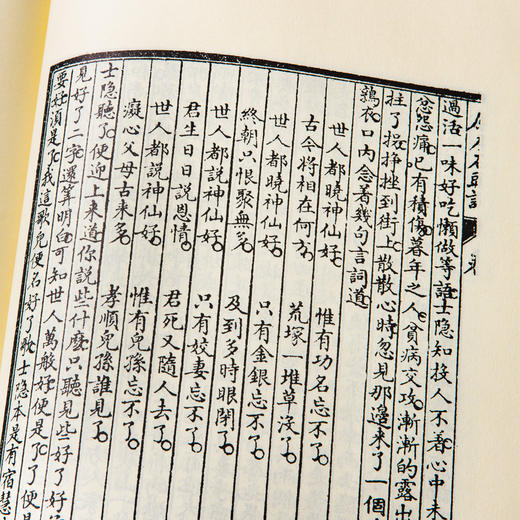 石頭記
卷
過活一味好吃懶做等語士隱知投人不着心中未
忿怨痛已有積傷暮年之人貧病交攻漸漸的露出
拄了拐掙挫到街上散散心時忽見那邊來了一個
鶉衣口內念着幾句言詞道
世人都曉神仙好 惟有功名忘不了
古今將相在何方 荒塚一堆草沒了
世人都曉神仙好 只有金銀忘不了
終朝只恨聚無多 及到多時眼閉了
世人都說神仙好 只有姣妻忘不了
君生日日說恩情 君死又隨人去了
世人都說神仙好 惟有兒孫忘不了
癡心父母古來多 孝順兒孫誰見了
士隱聽了便迎上來道你說些什麼只聽見些好了好
見好了二字還算明白可知世人萬般好便是了了便是
要好須是了我這歌兒便名好了歌士隱本是有宿慧